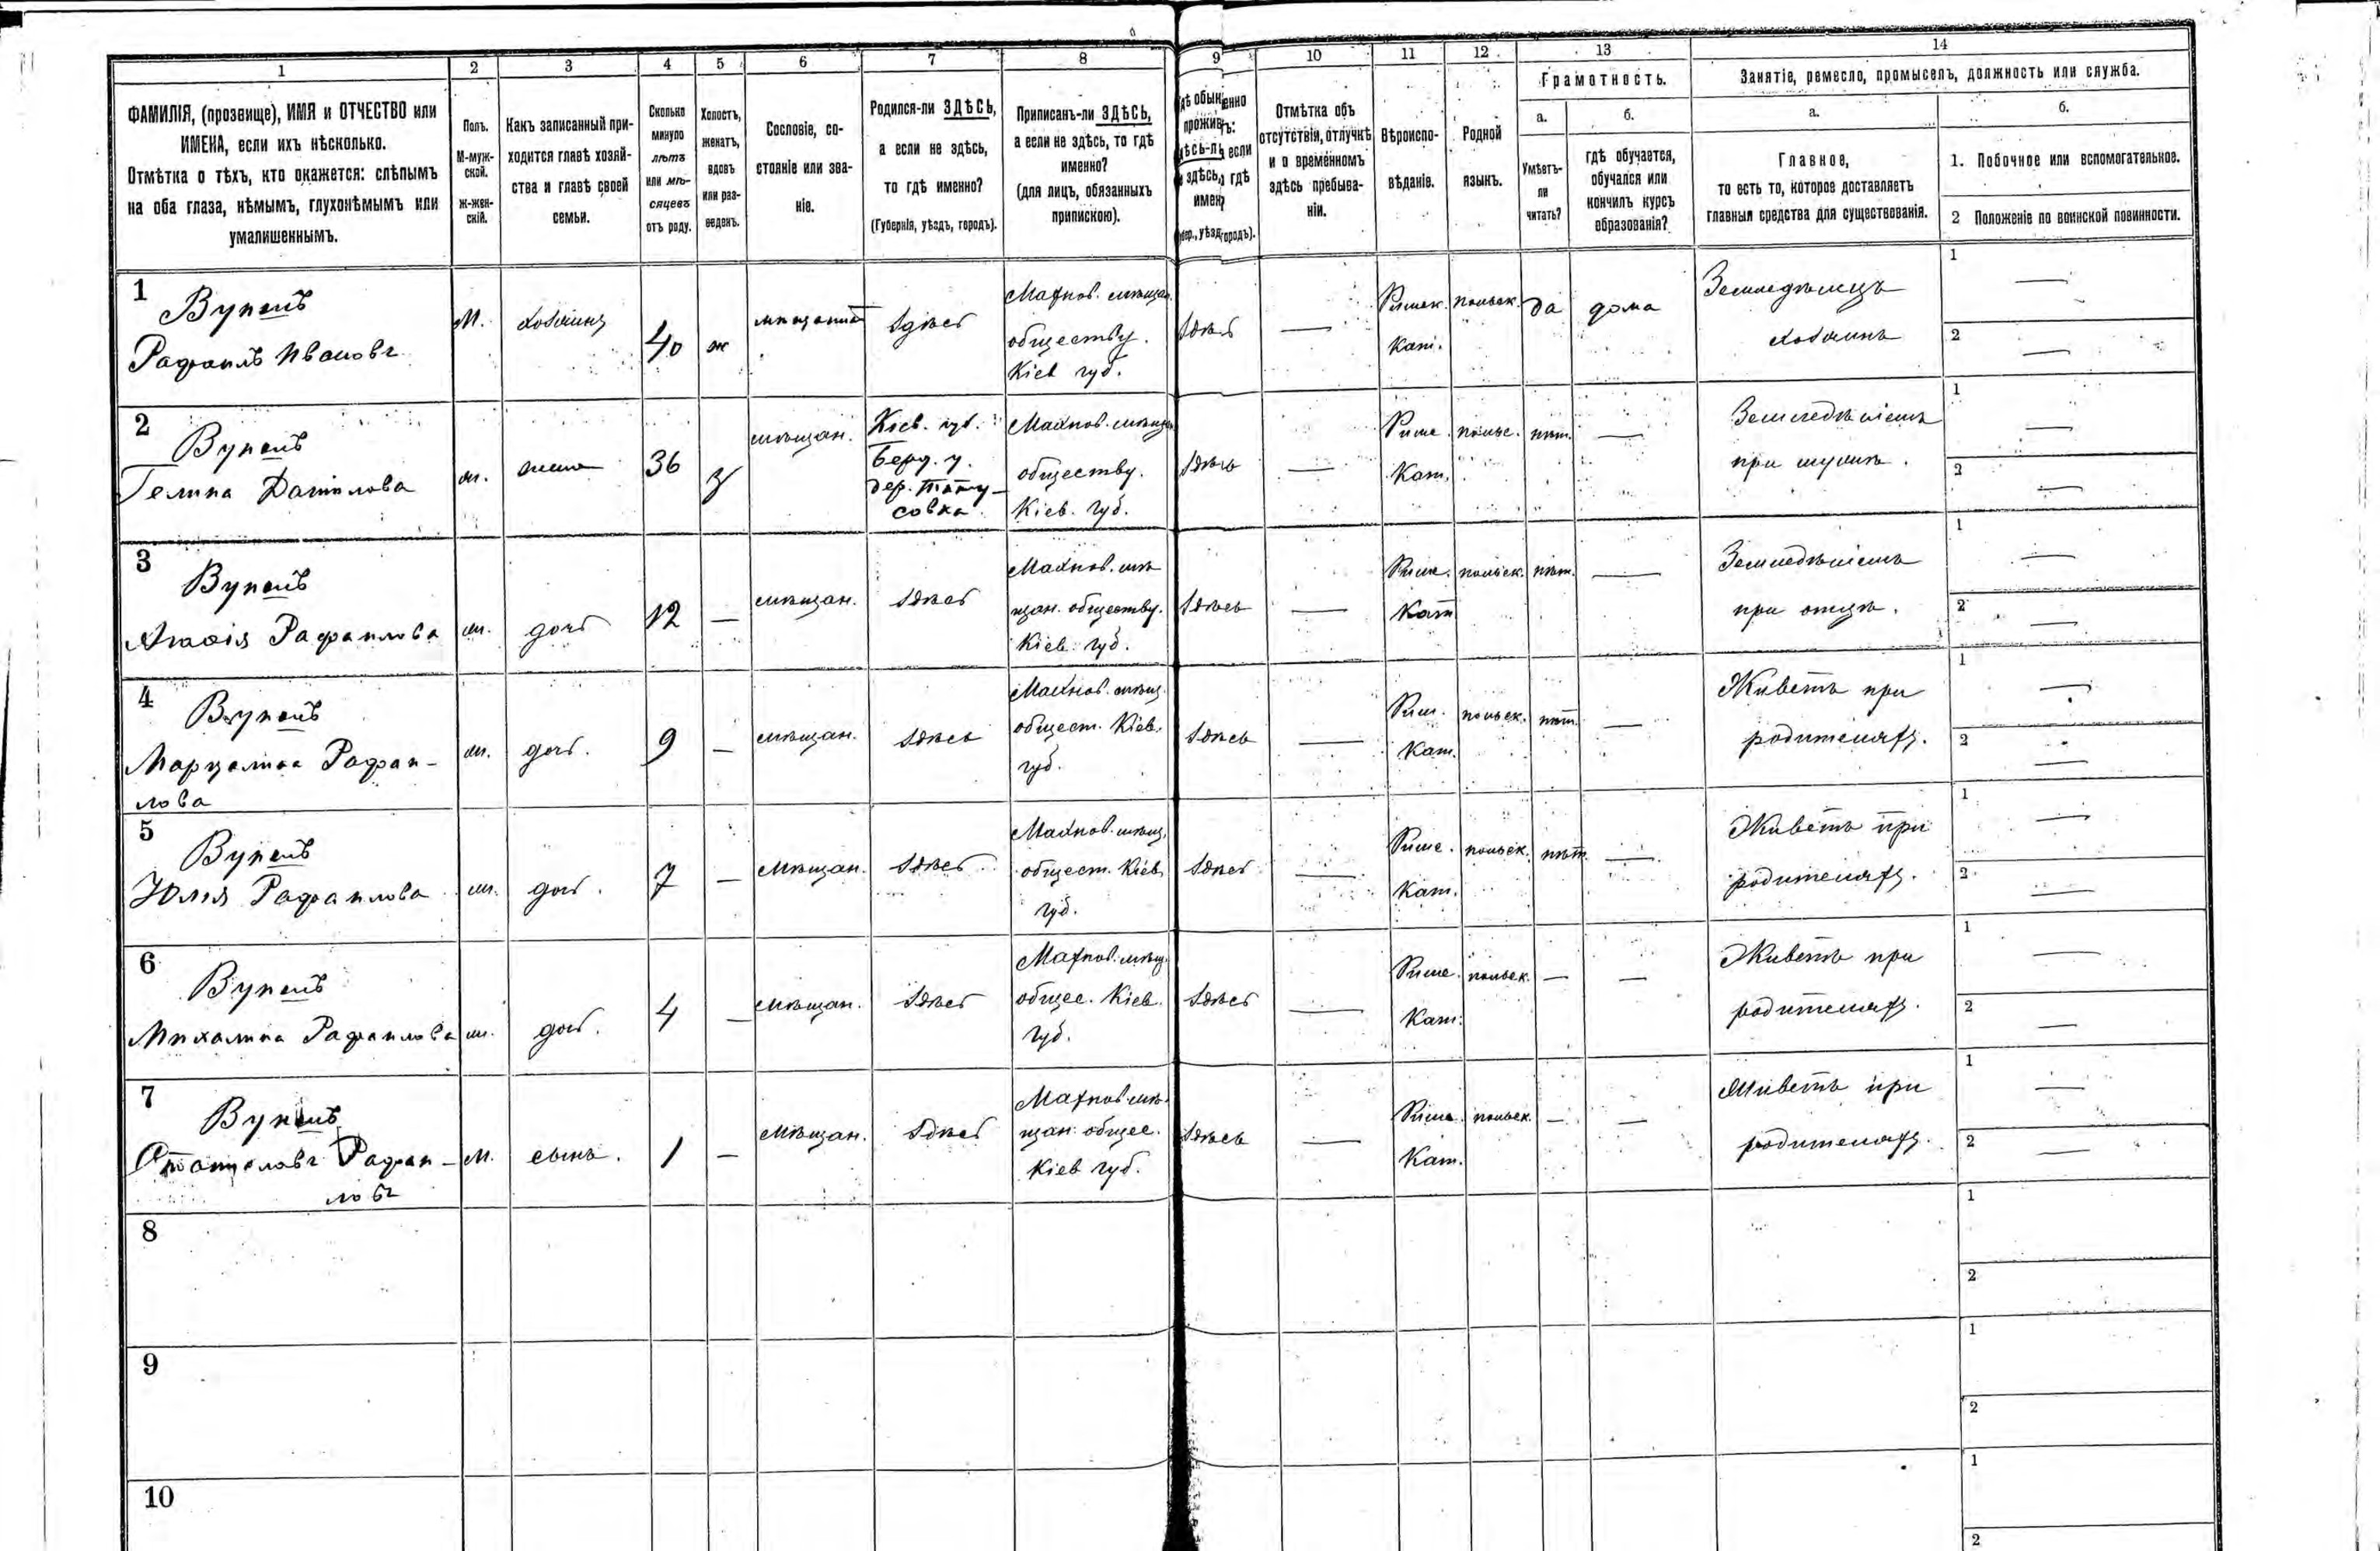 1 2 3 4 5 6 7 8 9 10 11 12 13 14
ФАМИЛІЯ, (прозвище), ИМЯ и ОТЧЕСТВО или
ИМЕНА, если ихъ нѣсколько.
Отмѣтка о тѣхъ, кто окажется: слѣпымъ
на оба глаза, нѣмымъ, глухонѣмымъ или
умалишеннымъ.
Полъ.
М-муж-
ской.
ж-жен-
скій.
Какъ записанный при-
ходится главѣ хозяй-
ства и главѣ своей
семьи.
Сколько
минуло
лѣтъ
или мѣ-
сяцевъ
отъ роду.
Холостъ,
женатъ,
вдовъ
или раз-
веденъ.
Сословіе, со-
стояніе или зва-
ніе.
Родился-ли ЗДѢСЬ,
а если не здѣсь,
то гдѣ именно?
(Губернія, уѣздъ, городъ).
Приписанъ-ли ЗДѢСЬ,
а если не здѣсь, то гдѣ
именно?
(для лицъ, обязанныхъ
припискою).
Отмѣтка объ
отсутствіи, отлучкѣ
и о временномъ
здѣсь пребыва-
ніи.
Вѣроиспо-
вѣданіе.
Родной
языкъ.
Грамотность.
а.
Умѣетъ-
ли
читать?
б.
гдѣ обучается,
обучался или
кончилъ курсъ
образованія?
Занятіе, ремесло, промыселъ, должность или служба.
а.
Главное,
то есть то, которое доставляетъ
главныя средства для существованія.
б.
1. Побочное или вспомогательное.
2 Положеніе по воинской повинности.
1
Рафаилъ Ивановъ
М.
хозяинъ
40
ж
мѣщанинъ
здѣсь
Махнов. мѣщан.
обществу.
Кіев губ.
здѣсь
—
Римск.
Кат.
польск.
да
дома
Земледѣлецъ
хозяинъ
1 —
2 —
2
Данилова
жена
36
з
мѣщан.
Кіев. губ.
Берд. у.
дер. Тату-
совка
Махнов. мѣщан
обществу.
Кіев. губ.
здѣсь
—
Римс.
Кат.
польс.
нѣт.
—
при мужѣ.
1 —
2 —
3
Рафаилова
дочь
12
—
мѣщан.
здѣсь
Махнов. мѣ
щан. обществу.
Кіев. губ.
здѣсь
—
Римс.
Кат
польск.
нѣт.
—
при отцѣ.
1 —
2 —
4
Марцелина Рафаи-
лова
дочь.
9
—
мѣщан.
здѣсь
Махнов. мѣщ.
общест. Кіев.
губ.
здѣсь
—
Рим.
Кат.
польск.
нѣт.
—
Живетъ при
родителяхъ.
1 —
2 —
5
Юлия Рафаилова
дочь.
7
—
мѣщан.
здѣсь
Махнов. мѣщ.
общест. Кіев.
губ.
здѣсь
—
Римс.
Кат.
польск.
нѣт.
—
Живетъ при
родителяхъ.
1 —
2 —
6
Михалина Рафаилова
дочь.
4
—
мѣщан.
здѣсь
Махнов. мѣщ.
общес. Кіев.
губ.
здѣсь
—
Римс.
Кат.
польск.
—
—
Живетъ при
родителяхъ.
1 —
2 —
7
Станиславъ Рафаи-
ловъ
М.
сынъ.
1
—
мѣщан.
здѣсь
Махнов. мѣ-
щан. общес.
Кіев губ.
здѣсь
—
Римс.
Кат.
польск.
—
—
Живетъ при
родителяхъ.
1 —
2 —
8
1
2
9
1
2
10
1
2